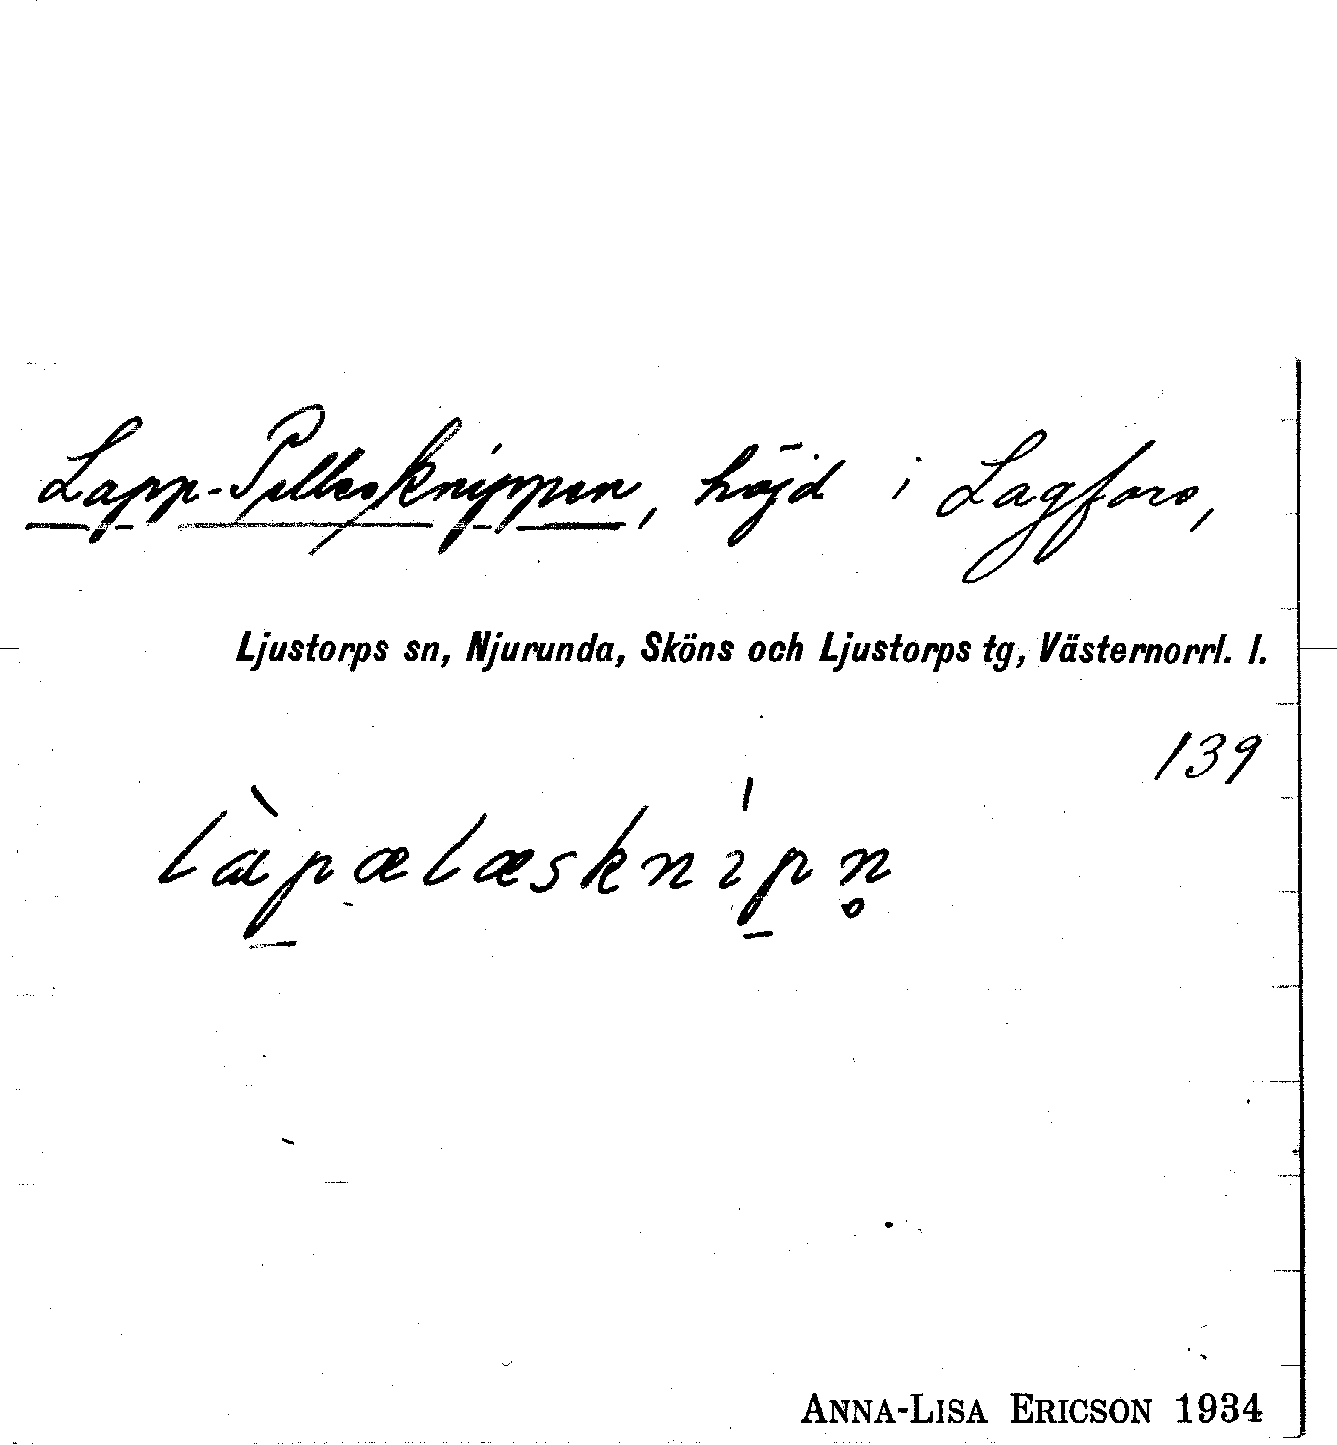 Lapp-Pelles/knippen, höjd i Lagfors,
Ljustorps sn, Njurunda, Sköns och Ljustorps tg, Västernorrl. l.
139
làpælæsknı̍pn̥
ANNA-LISA ERICSON 1934